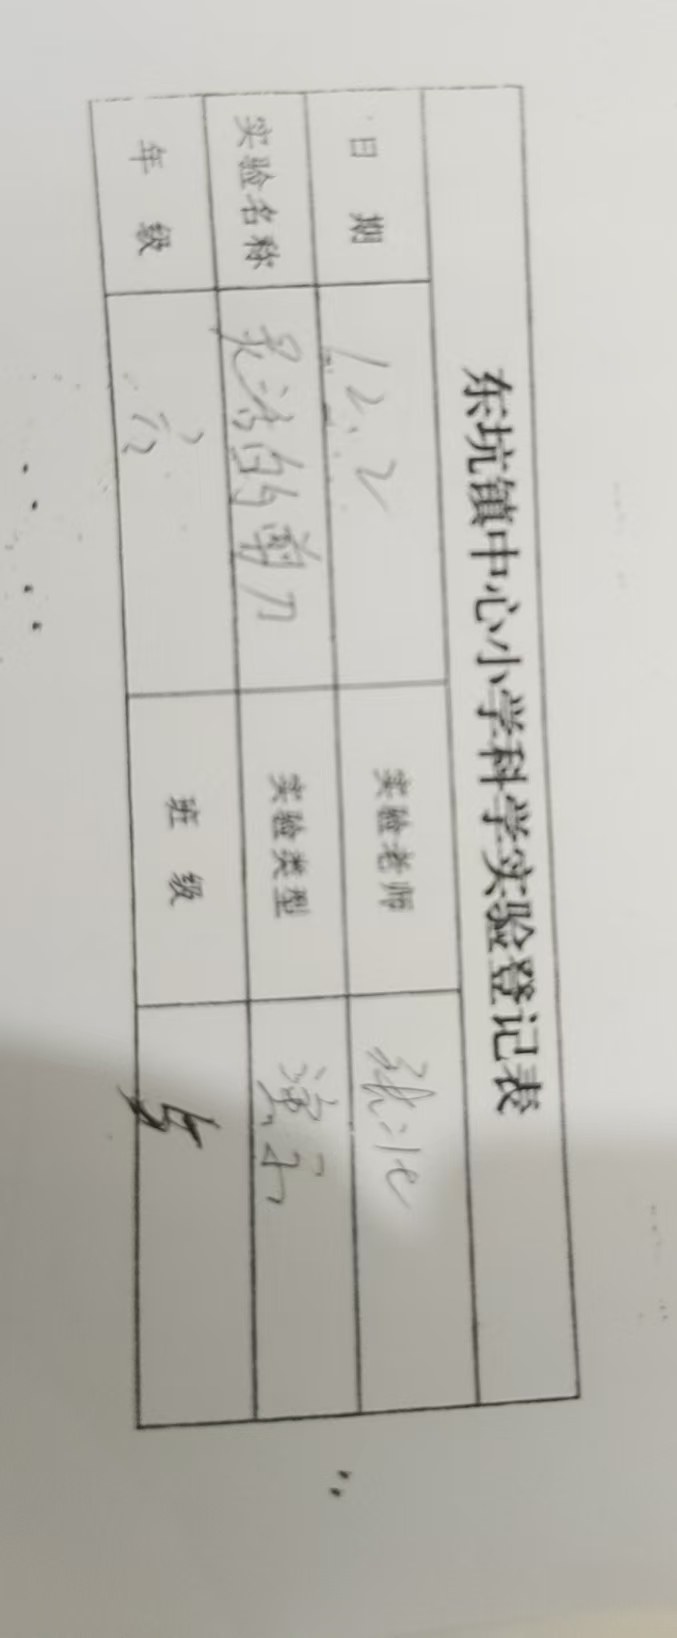 东坑镇中心小学科学实验登记表
日 期 12.2 实验老师 张北
实验名称 灵活的剪刀 实验类型 演示
年 级 六 班 级 5